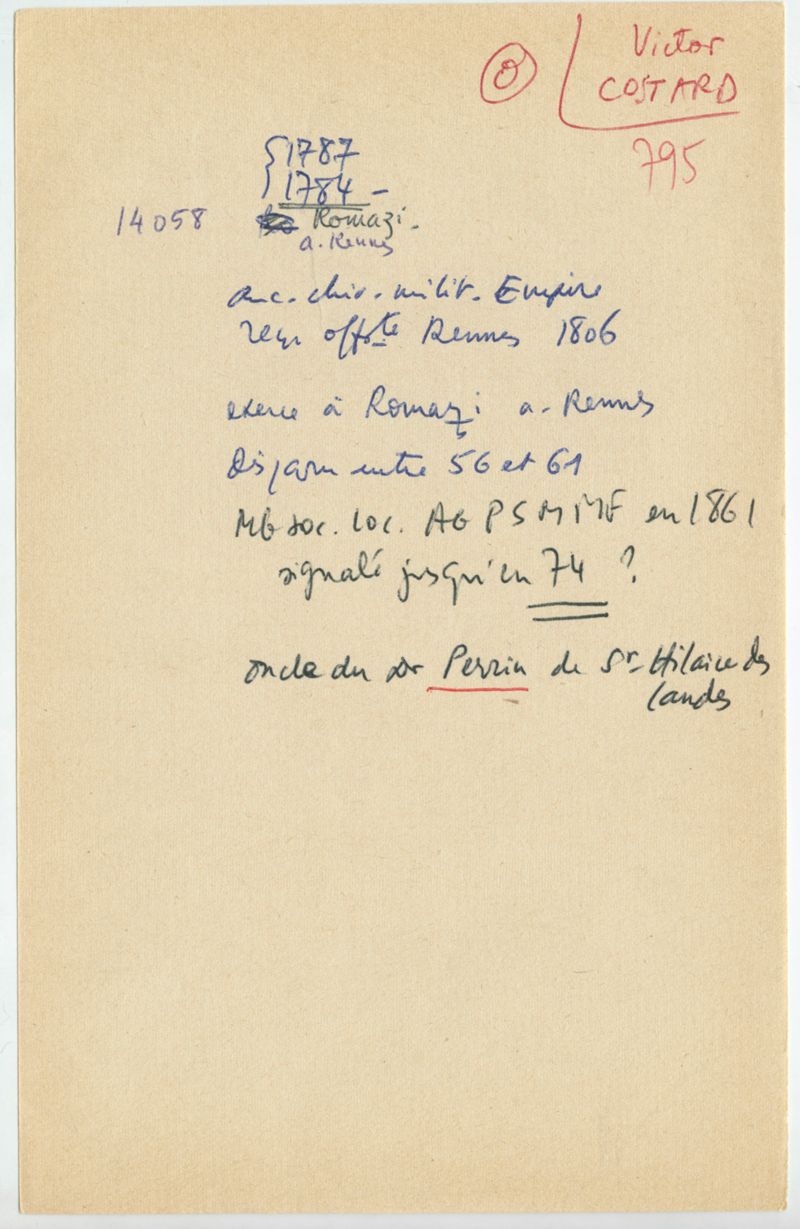 O
Victor
COSTARD
795
{1787
1784 -
14058 Romazi.
a. Rennes
anc. chir. milit. Empire
reçu offté Rennes 1806
exerce à Romazi a. Rennes
Disparu entre 56 et 61
Mb soc. loc. AG PSMMF en 1861
signalé jusqu'en 74 ?
oncle du Dr Perrin de St-Hilaire des
Landes